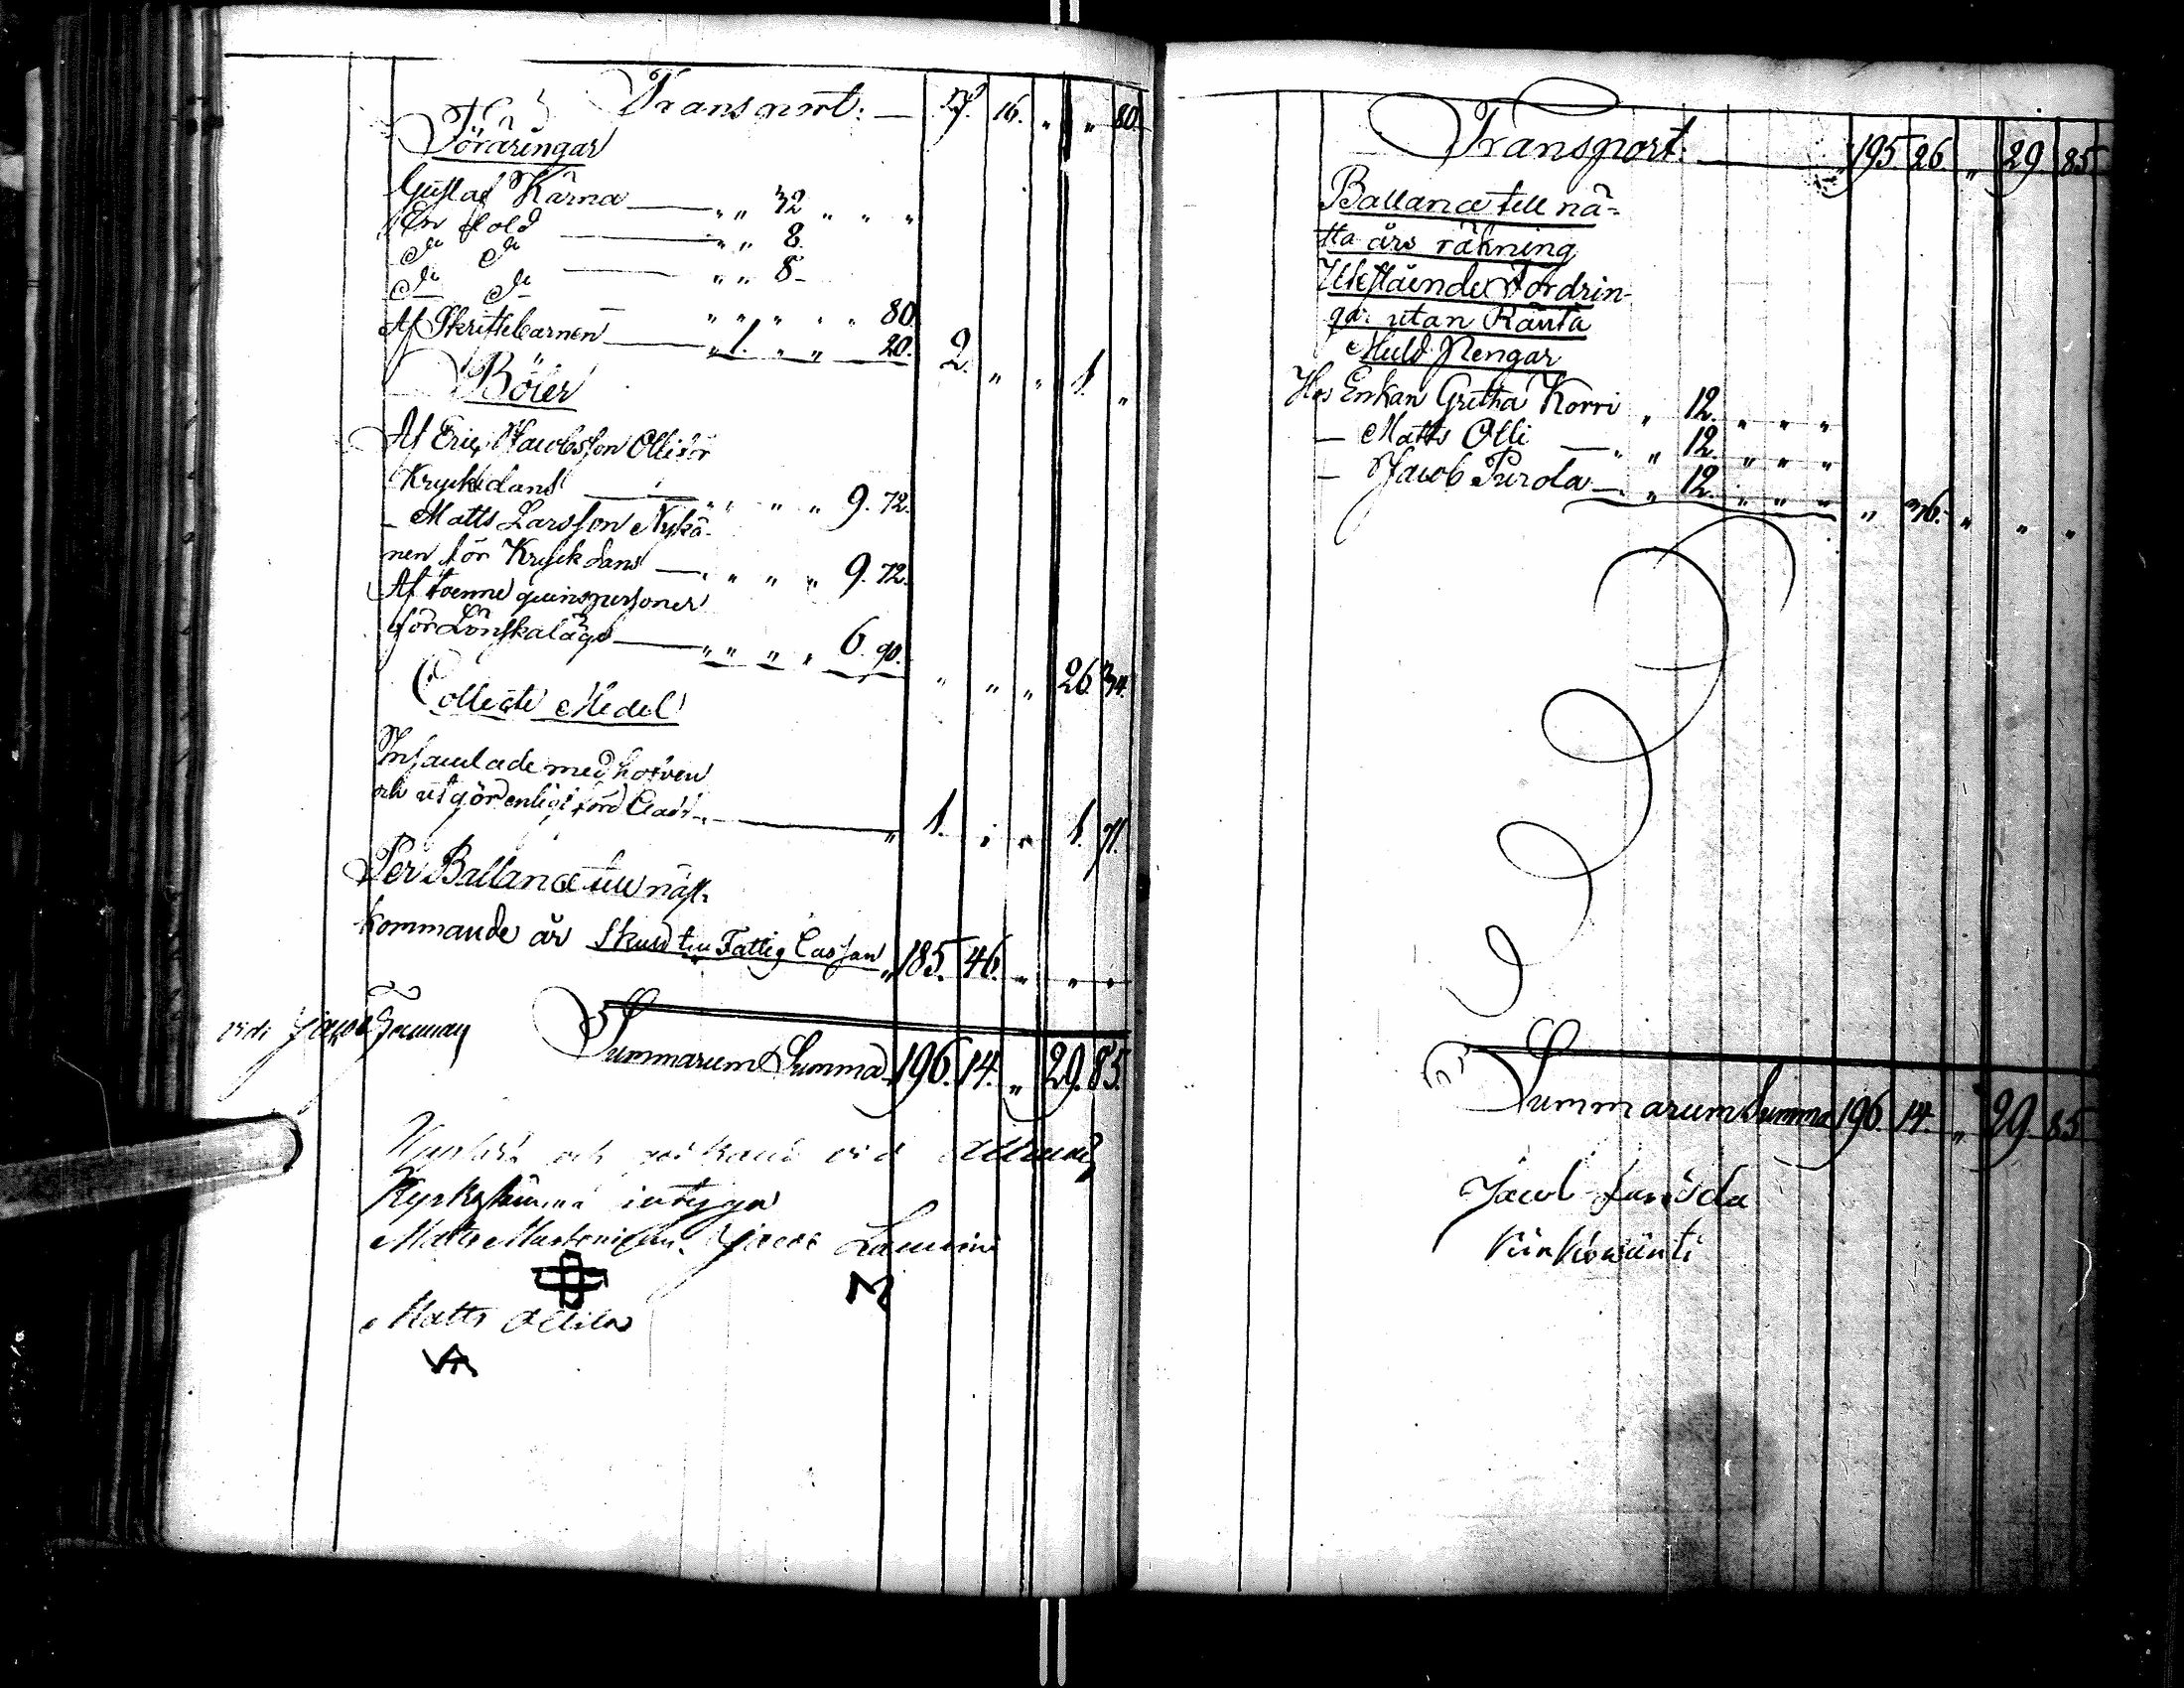 Transport: — 7. 16. „ „ 80.
Föräringar
Gustaf Kärna — „ „ 32 „ „ „
En Gold — „ „ 8.
do do — „ „ 8-
do do — „ „ „ „ „ 80.
Af Skriftebarnen — „ 1. „ „ 20. 2. „ „ 1. „
Böter
Af Eric Jacobsson Olli för
Kryckdans — „ „ „ „ 9. 72.
— Matts Larsson Nykä-
nen för Kryckdans — „ „ „ „ 9. 72.
Af tvenne quinspersoner
för Lönskaläge — „ „ „ „ 6. 90. „ „ „ 26. 34.
Collecte Medel
Insamlade med hofven
och utgör enligt — „ 1. „ „ 1. 71.
Per Ballance till näst-
kommande år Skuld till Fattig Cassan „ 185. 46. „ „ „
vidi Jacob
Summarum Summa 196. 14. „ 29. 85.
och vid
Kyrkostämma intyga
Matts Jacob
Matts Ollila
Transport: — 195. 26. „ 29. 85.
Ballance till nä-
sta års räkning
Utestående Fordrin-
gar utan Ränta
Muld Pengar
Hos Enkan Gretha Korri „ 12. „ „ „
— Matts Olli — „ „ 12. „ „ „
— Jacob Purola — „ 12. „ „ „ „ 36. „ „ „
Summarum Summa 196. 14. „ 29. 85
Jacob